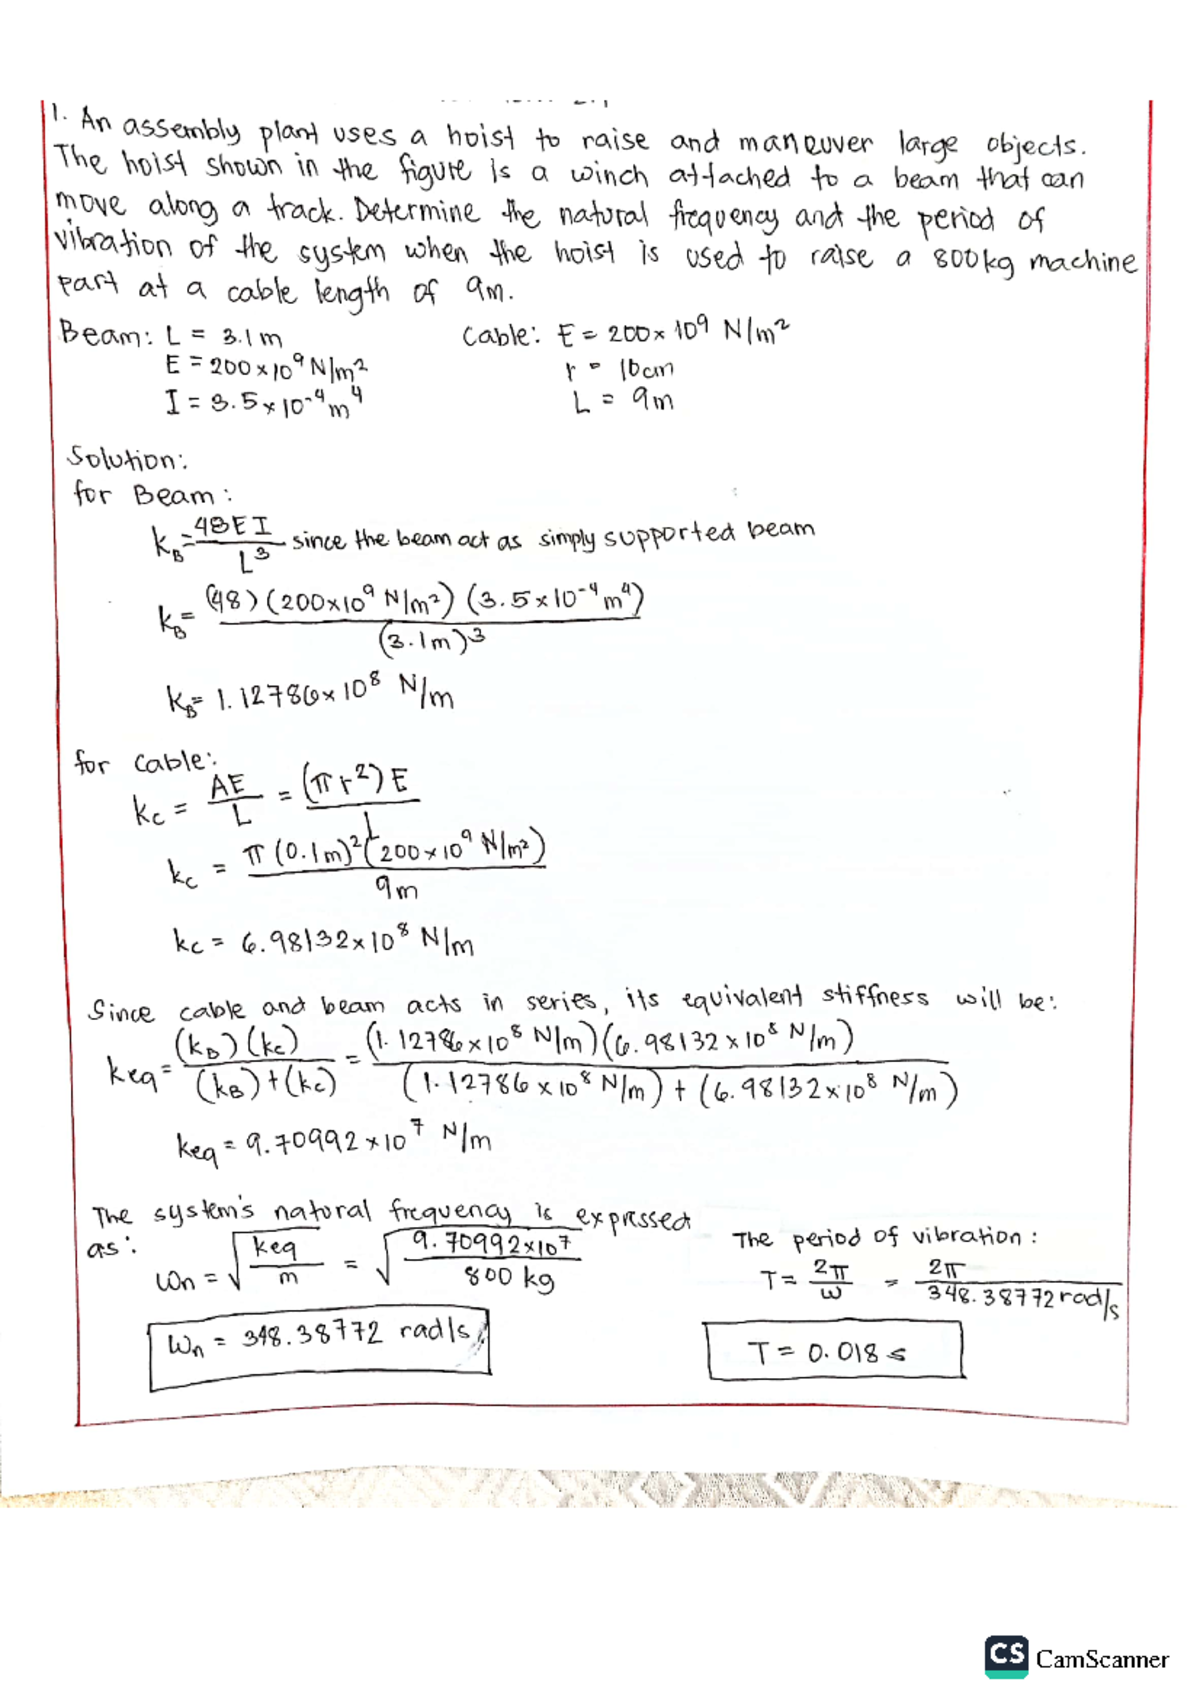 1. An assembly plant uses a hoist to raise and maneuver large objects.
The hoist shown in the figure is a winch attached to a beam that can
move along a track. Determine the natural frequency and the period of
vibration of the system when the hoist is used to raise a 800kg machine
part at a cable length of 9m.
Beam: L = 3.1m Cable: E = 200×10⁹ N/m²
E = 200×10⁹ N/m² r = 10cm
I = 3.5×10⁻⁴ m⁴ L = 9m
Solution:
for Beam:
k_B = 48EI / L³ since the beam act as simply supported beam
k_B = (48)(200×10⁹ N/m²)(3.5×10⁻⁴ m⁴) / (3.1m)³
k_B = 1.12786×10⁸ N/m
for Cable:
k_C = AE / L = (πr²)E / L
k_C = π(0.1m)²(200×10⁹ N/m²) / 9m
k_C = 6.98132×10⁸ N/m
Since cable and beam acts in series, its equivalent stiffness will be:
k_eq = (k_B)(k_C) / (k_B)+(k_C) = (1.12786×10⁸ N/m)(6.98132×10⁸ N/m) / (1.12786×10⁸ N/m) + (6.98132×10⁸ N/m)
k_eq = 9.70992×10⁷ N/m
The system's natural frequency is expressed
as:
ωn = √(k_eq / m) = √(9.70992×10⁷ / 800 kg)
ωn = 348.38772 rad/s
The period of vibration:
T = 2π / ω = 2π / 348.38772 rad/s
T = 0.018 s
CS CamScanner